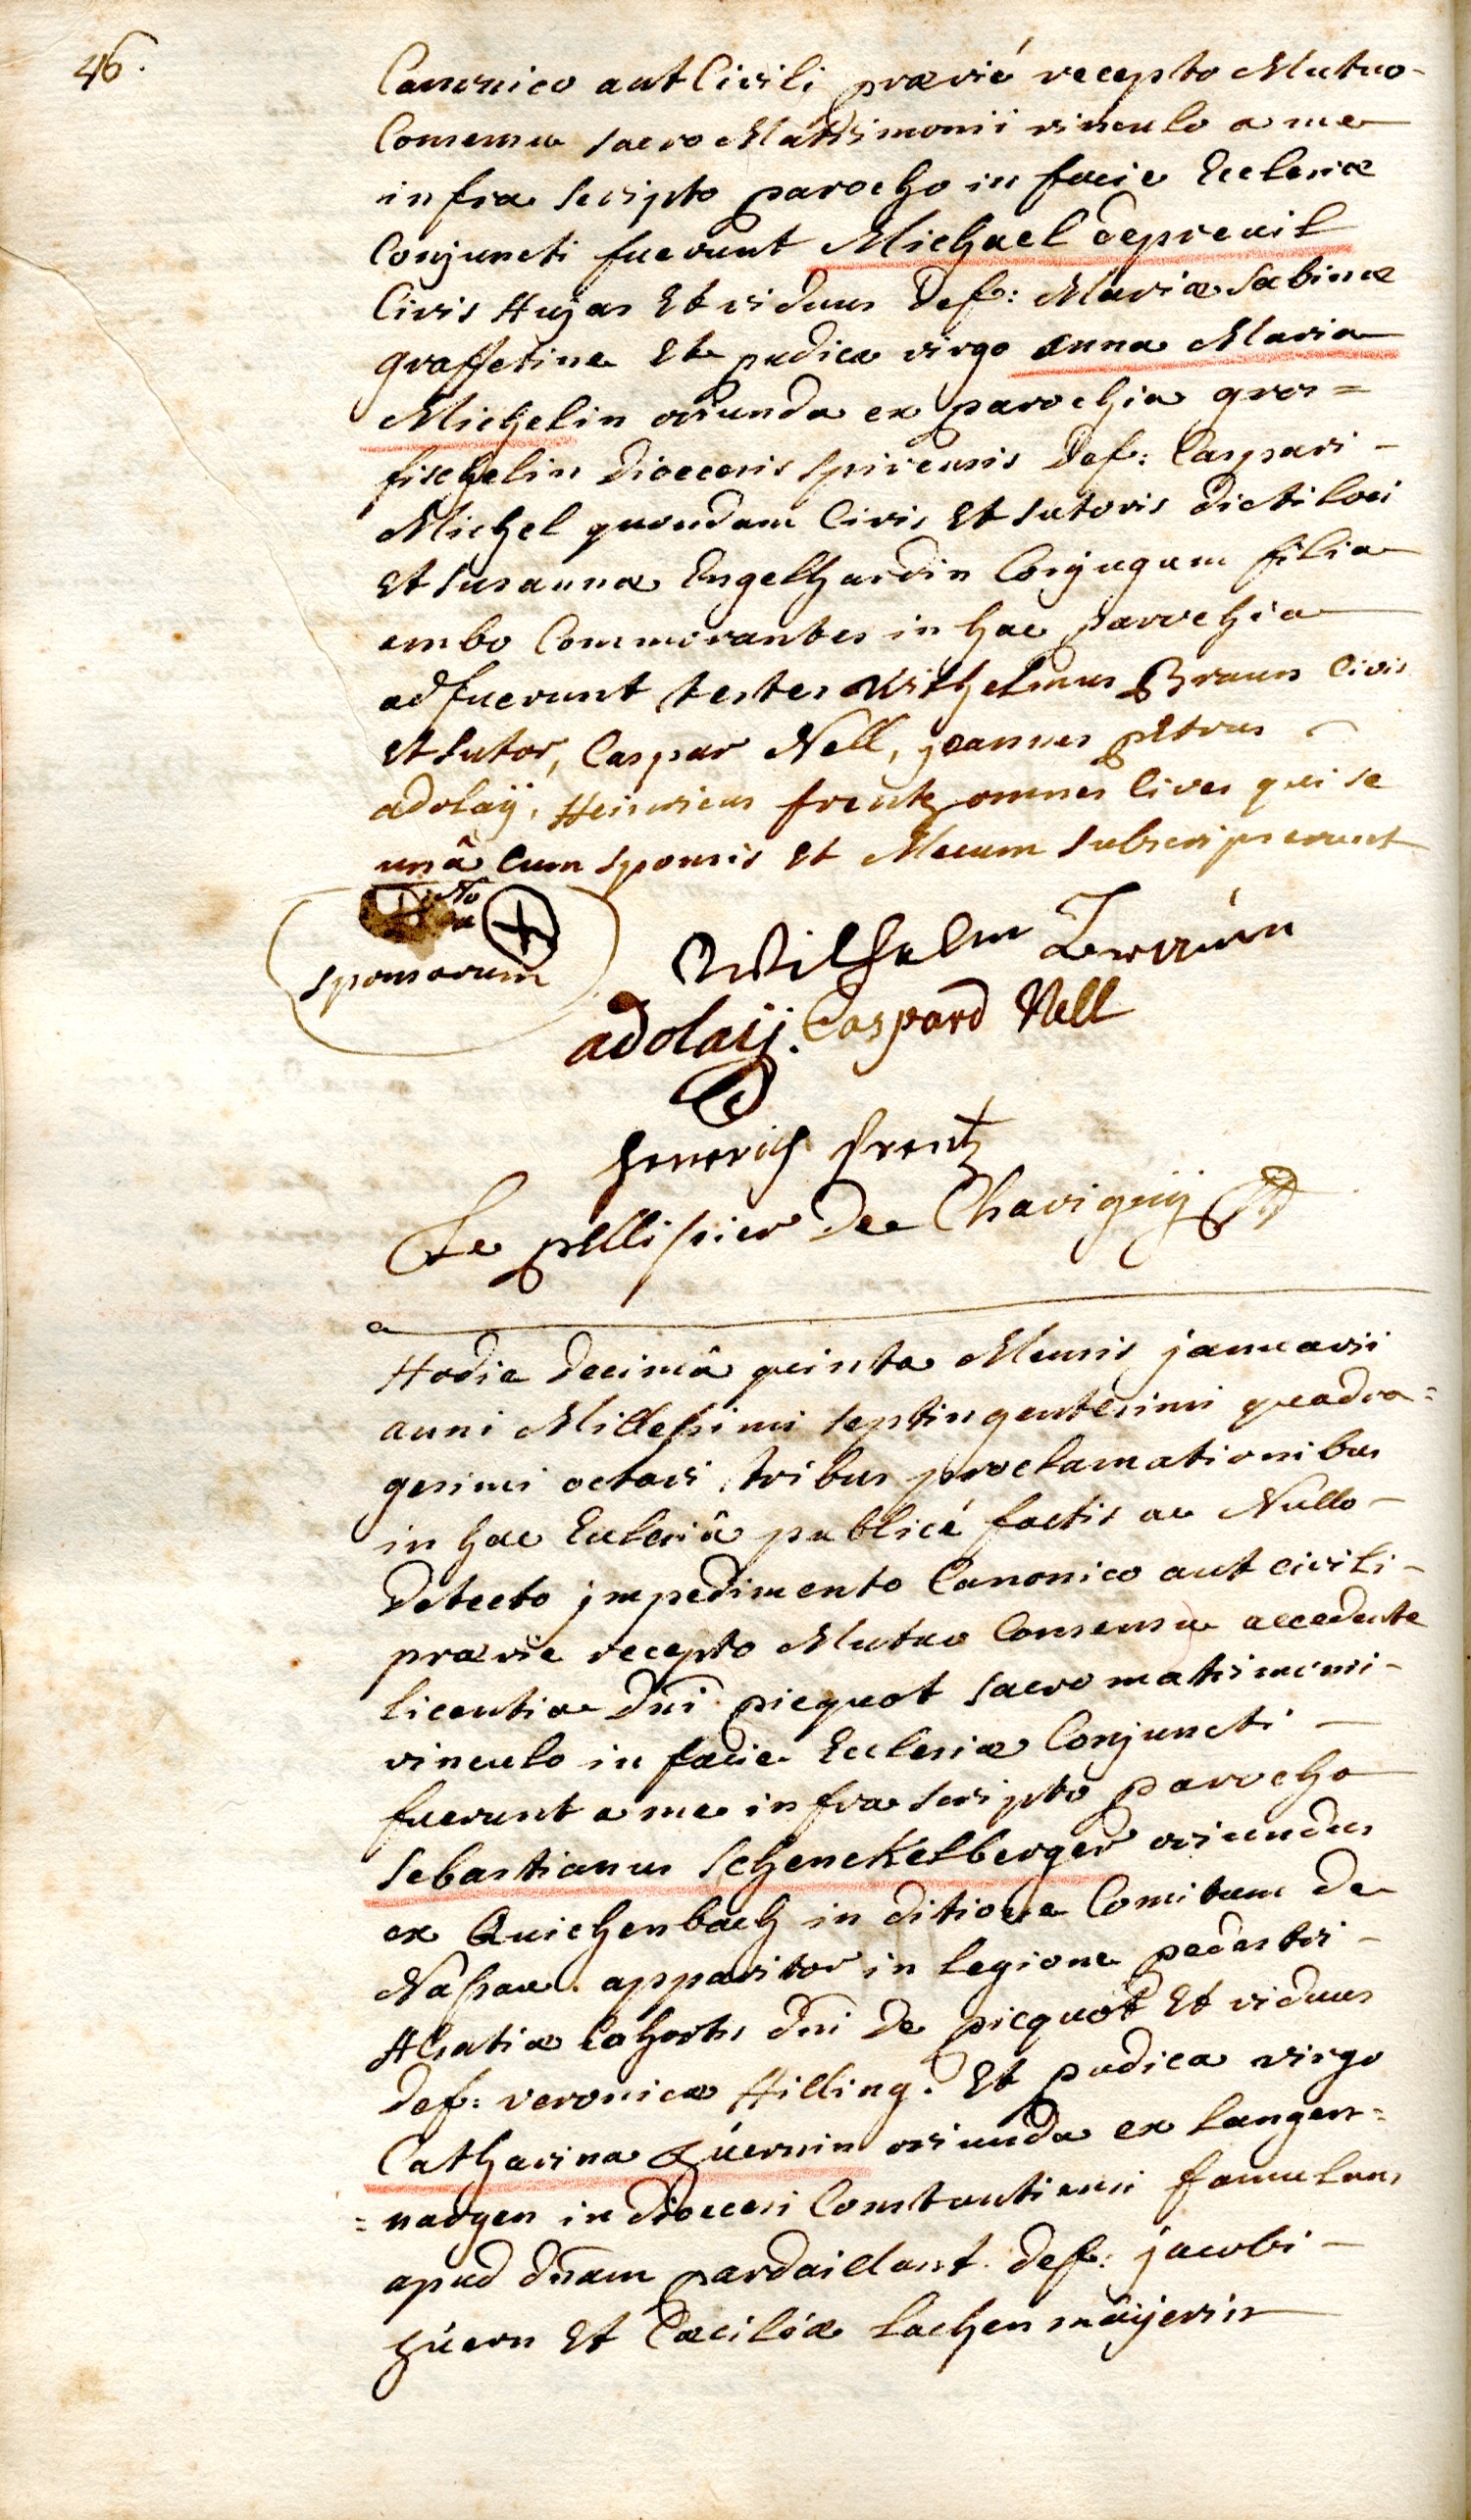 46.
Canonico aut Civili prævié recepto Mutuo-
Consensu sacro Matrimonii vinculo a me
infra scripto parocho in facie Ecclesiæ
Conjuncti fuerunt Michael depreuil
Civis Hujas Et viduus Def: Mariæ Sabinæ
graffetine Et pudica virgo anna Maria
Michelin oriunda ex parochia gros=
fischelin Dioecesis spirensis Def: Caspari-
Michel quondam Civis Et sutoris dicti loci
Et susanna Engelhardin Conjugum filia
ambo Commorantes in hac parochia
adfuerunt testes Wilhelmus Braun Civis
Et sutor, Caspar Nell, joannes petrus
adolaÿ, Heinricus frentz omnes Cives qui se
unâ Cum sponsis Et Mecum subscripserunt
sponsorum
Wilhelm Braún
adolaij. Caspard Nell
Henerich frentz
Le pellissier De Chavignÿ
Hodie Decimâ quinta Mensis januarii
anni Millesimi septingentesimi quadra=
gesimi octavi, tribus proclamationibus
in hac Ecclesiâ publicé factis ac Nullo-
Detecto jmpedimento Canonico aut civili-
prævie recepto Mutuo Consensu accedente
licentia Dni picquot sacro matrimonii-
vinculo in facie Ecclesiæ Conjuncti -
fuerunt a me infra scripto parocho
sebastianus schenckelberger oriundus
ex Quichenbach in ditione Comitum de
Nassau. apparitor in legione pedestri-
Alsatiæ Cohortis dni De picquot Et viduus
Def: veronicæ Hilling. Et pudica virgo
Catharina húernin oriunda ex langen=
=nargen in dioecesi Constantiensi famulans
apud dnam pardaillant. def: jacobi-
húern Et Cæciliæ lachenmäijerin